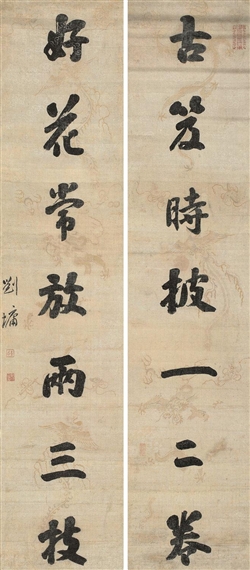 古笈時披一二卷
好花常放兩三枝
劉墉